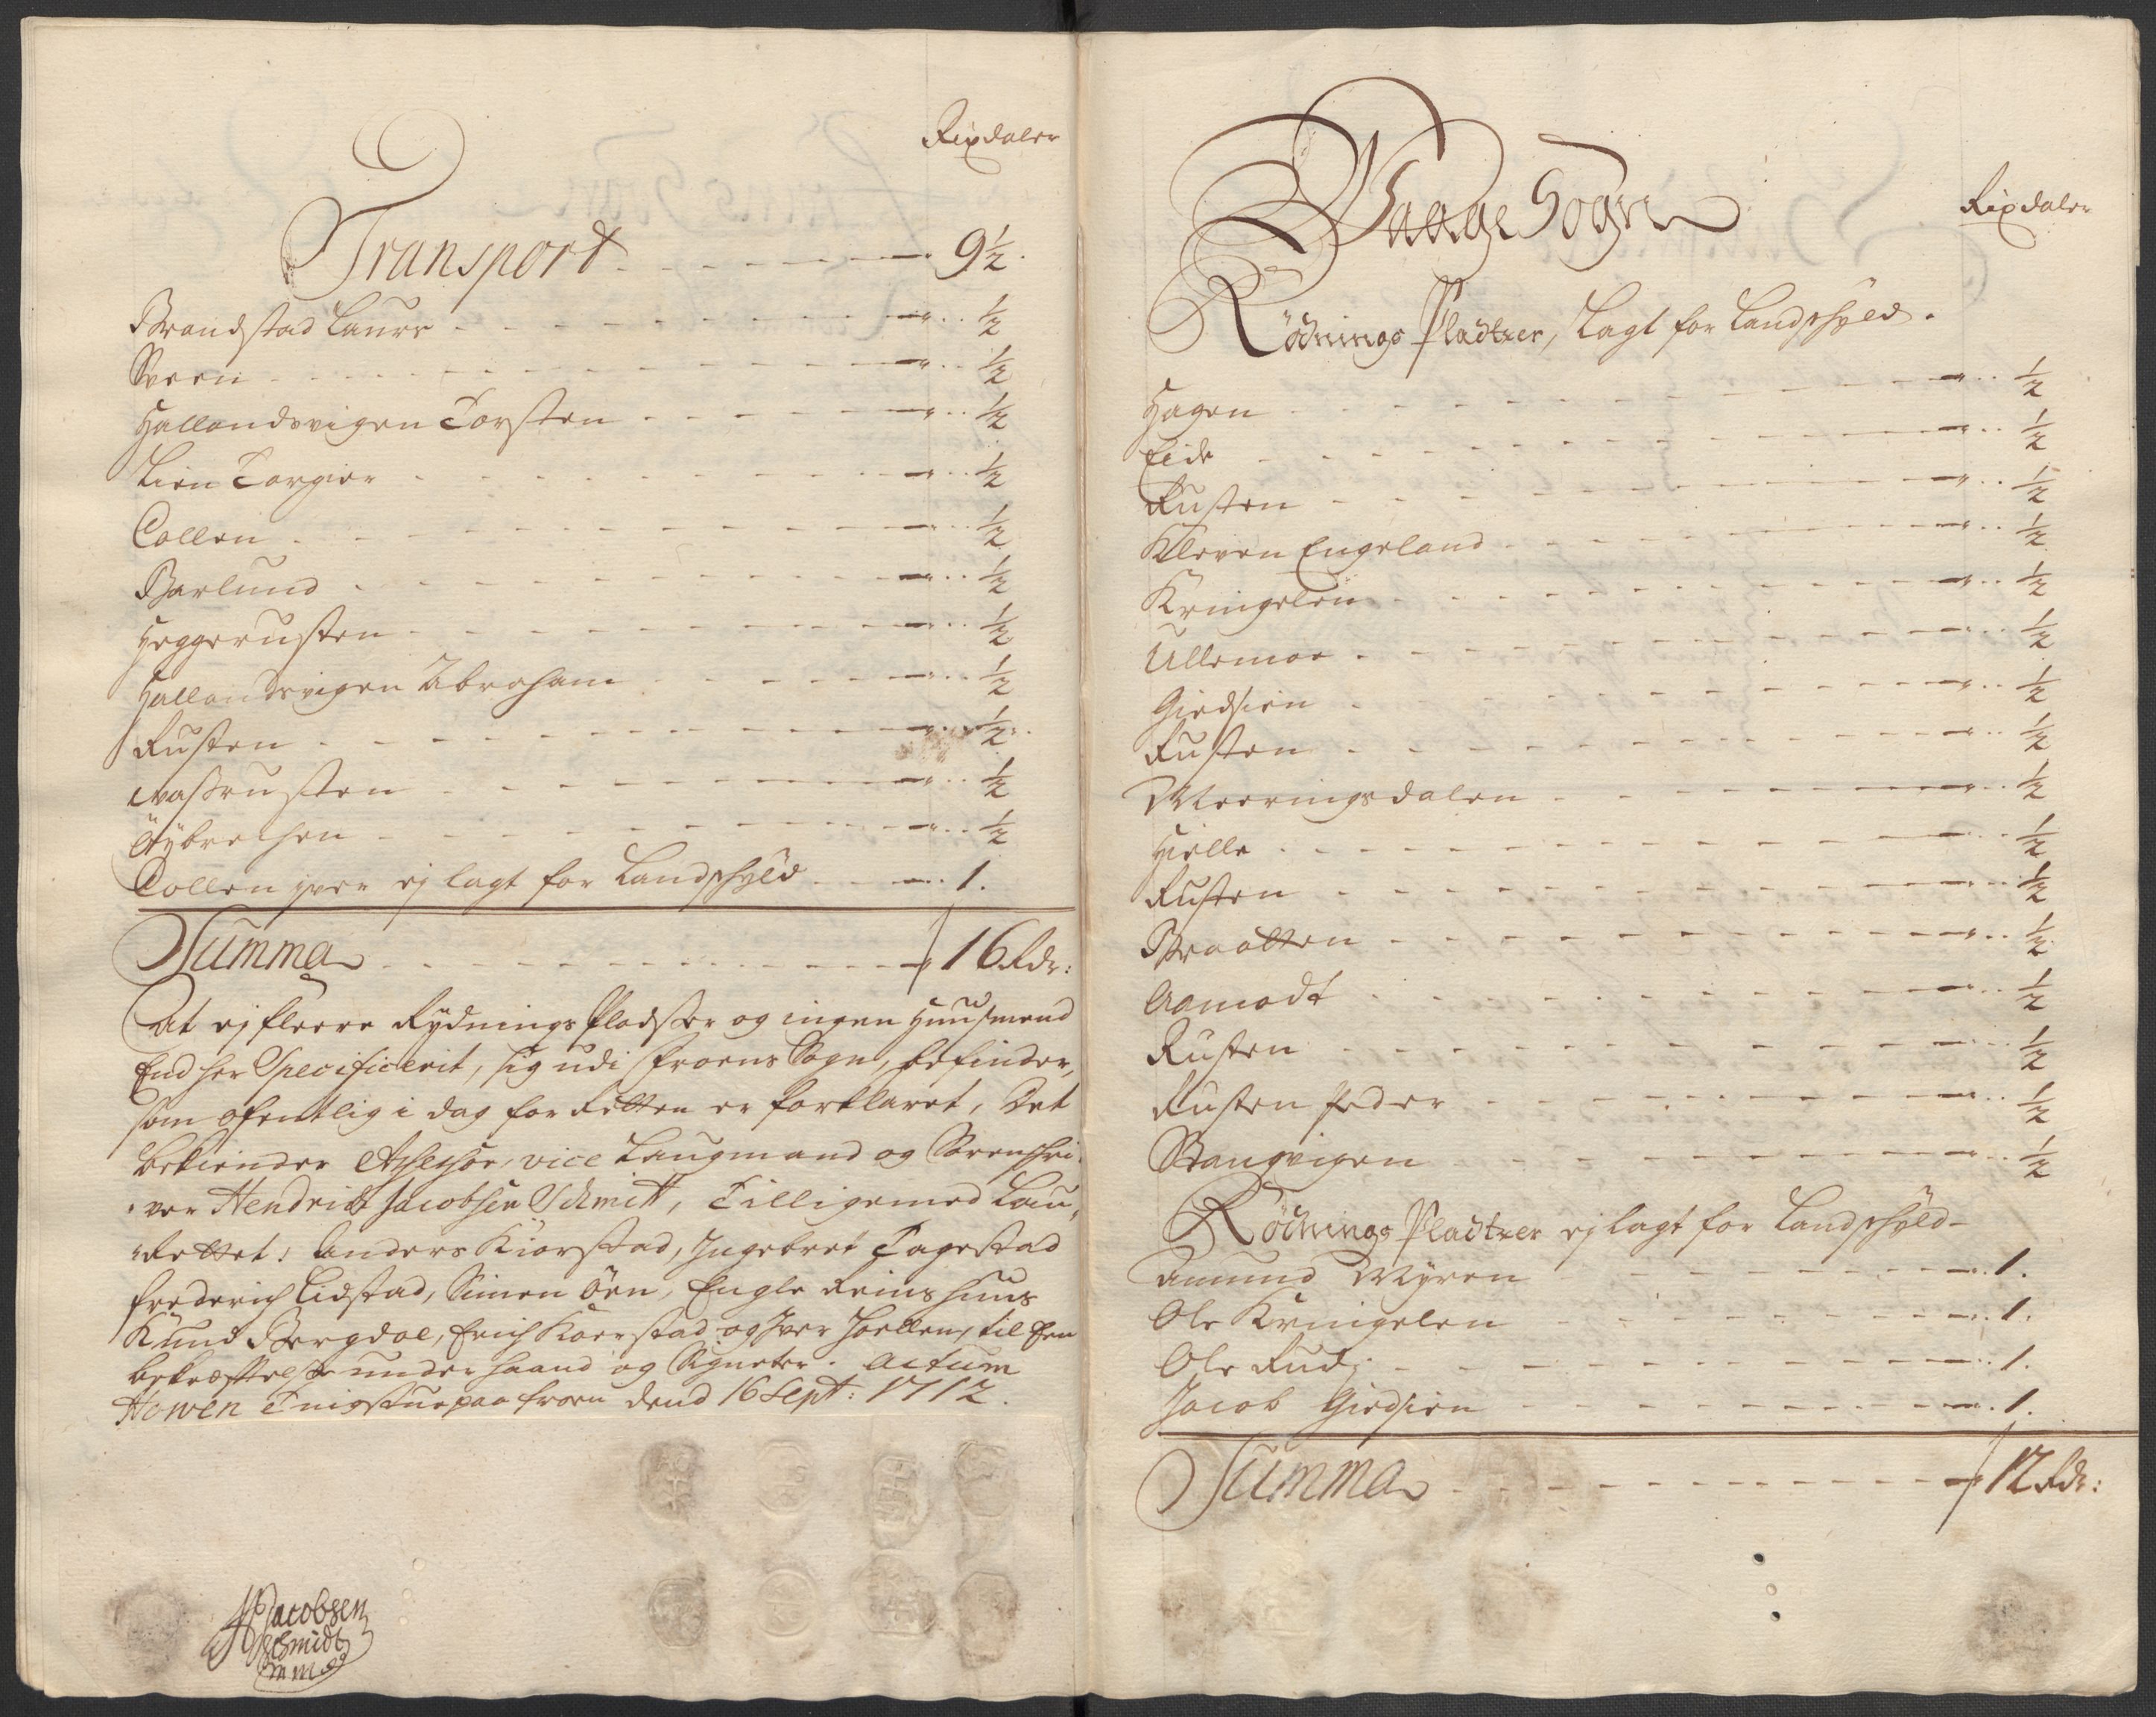 Rixdaler
Transport 9½
Brandstad Laurs ½
Sveen ½
Hallandsvigen Torsten ½
Lien Torgier ½
Collen ½
Barlund ½
Heggerusten ½
Hallandsvigen Abraham ½
Rusten ½
Nastrusten ½
½
Collen Iver ej lagt for Landschyld 1.
Summa 16 Rdr:
At ej fleere Rydnings Pladtzer og ingen Huusmend
End her Specificerit, sig udi Froens Sogn, befinder,
som ofentlig i dag for Retten er forklaret, Det
bekiender Assessor, vice Laugmand og Sorenschri-
ver Hendrich Jacobsen Schmitt, Tilligemed Lau-
Rettet: Anders Kiorstad, Ingebret Tagestad
Frederich Lidstad, Simen Öen, Engle Reinshuus
Knud Bergdal, Erich Kaerstad og Iver Joellen, til
bekræftelse under haand og Signeter. Actum
Howen Tingstue paa Froen dend 16 Sept: 1712.
HJacobsen
Schmidt
mmp
Rixdaler
Waage Sogn
Rödnings Pladtzer, Lagt for Landschyld.
Hagen ½
Eide ½
Rusten ½
Kleven Engeland ½
Kringelen ½
Ullemoe ½
Giedsien ½
Rusten ½
Meeringsdalen ½
Hielle ½
Rusten ½
Braatten ½
Aamodt ½
Rusten ½
Rusten Peder ½
Stangvigen ½
Rödnings Pladtzer ej lagt for Landschyld
Amund Myren 1.
Ole Kringelen 1.
Ole Rud 1.
Jacob Giedsien 1.
Summa 12 Rdr: